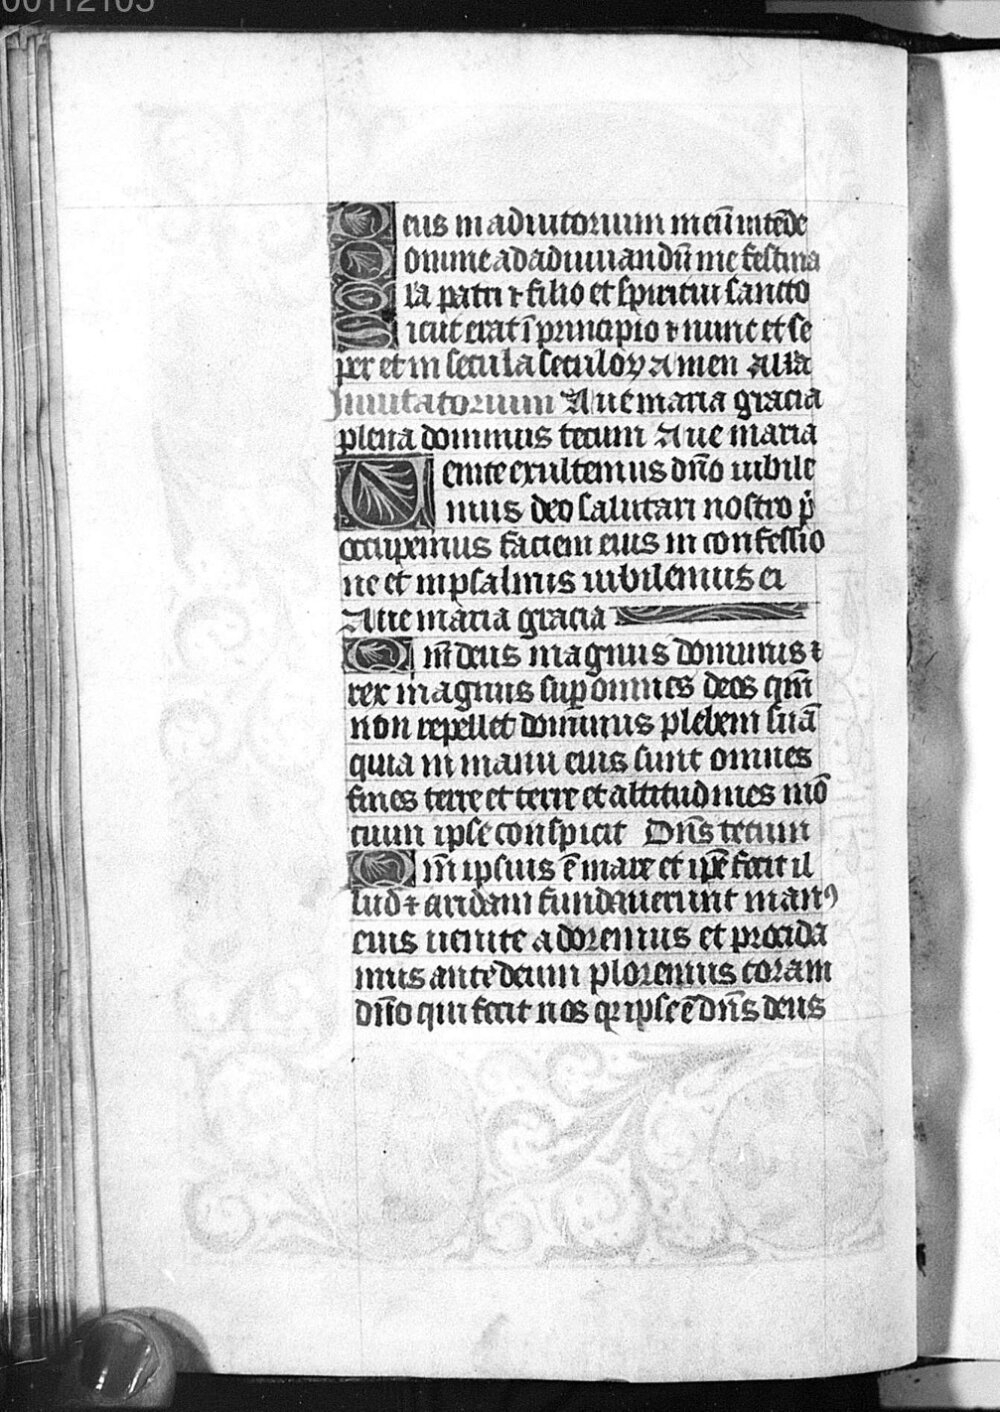 00112105
Deus in adiutorium meū intēde
Domine ad adiuuandū me festina
Gľa patri ⁊ filio et spiritui sancto
Sicut erat ī principio ⁊ nunc et se
per et in secula seculoꝝ Amen Alľa
Inuitatorium Aue maria gracia
plena dominus tecum Aue maria
Uenite exultemus dño iubile
mus deo salutari nostro p̄
occupemus faciem eius in confessio
ne et in psalmis iubilemus ei
Aue maria gracia
Qm̄ deus magnus dominus ⁊
rex magnus suꝑ omnes deos qm̄
non repellet dominus plebem suā
quia in manu eius sunt omnes
fines terre et terre et altitudines mō
cium ipse conspicit Dñs tecum
Qm̄ ipsius ē mare et ip̄e fecit il
lud ⁊ aridam fundauerunt manꝰ
eius uenite adoremus et procida
mus ante deum ploremus coram
dño qui fecit nos qꝛ ipse ē dñs deus